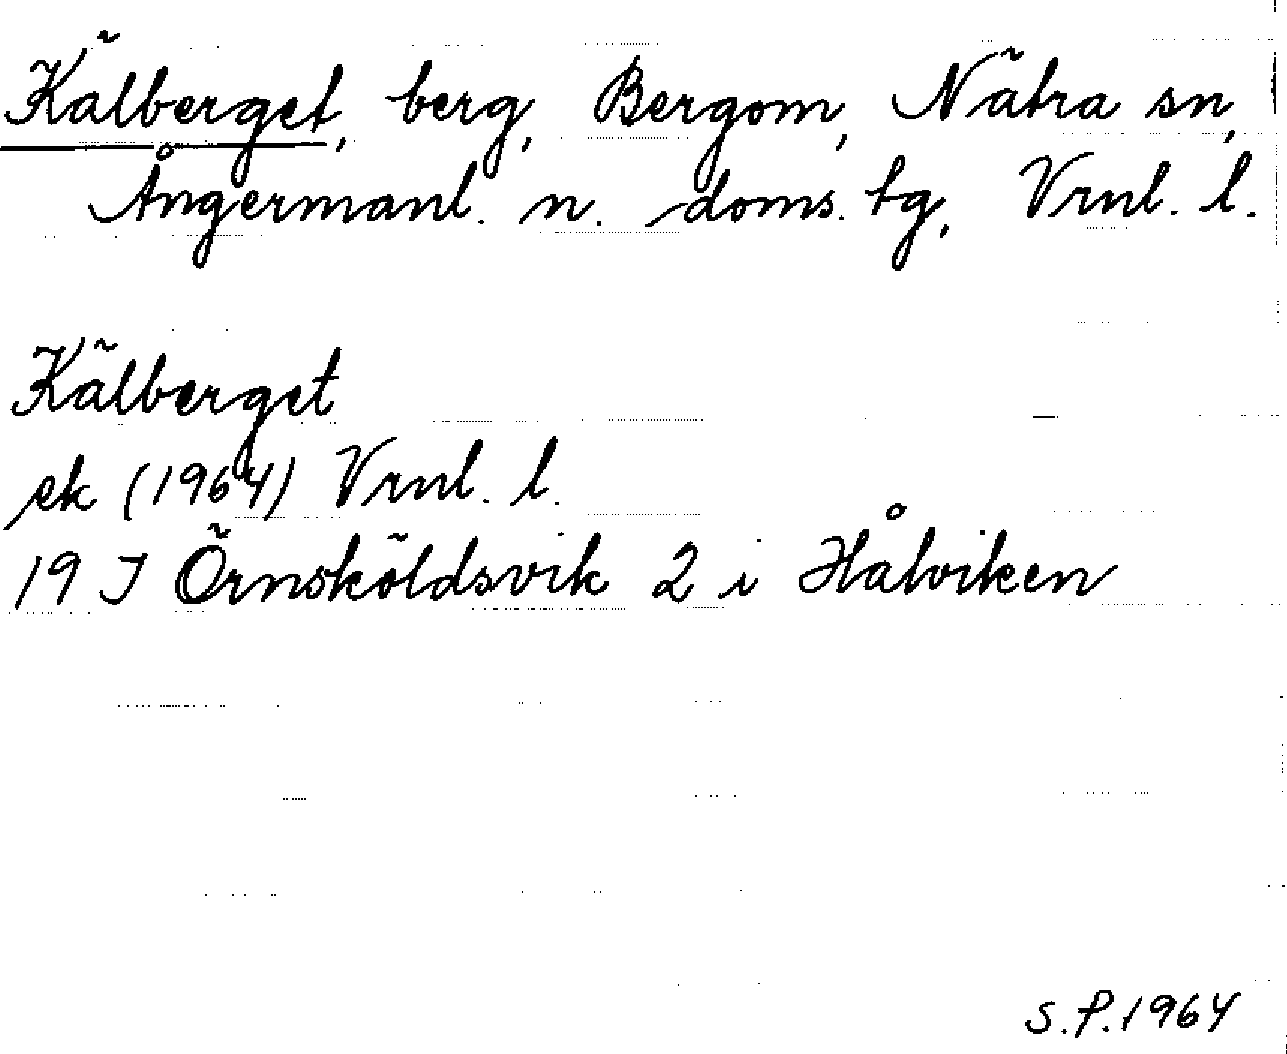 Kälberget, berg, Bergom, Nätra sn,
Ångermanl. n. doms. tg, Vrnl. l.
Kälberget
ek (1964) Vrnl. l.
19 J Örnsköldsvik 2 i Hålviken
S.P. 1964